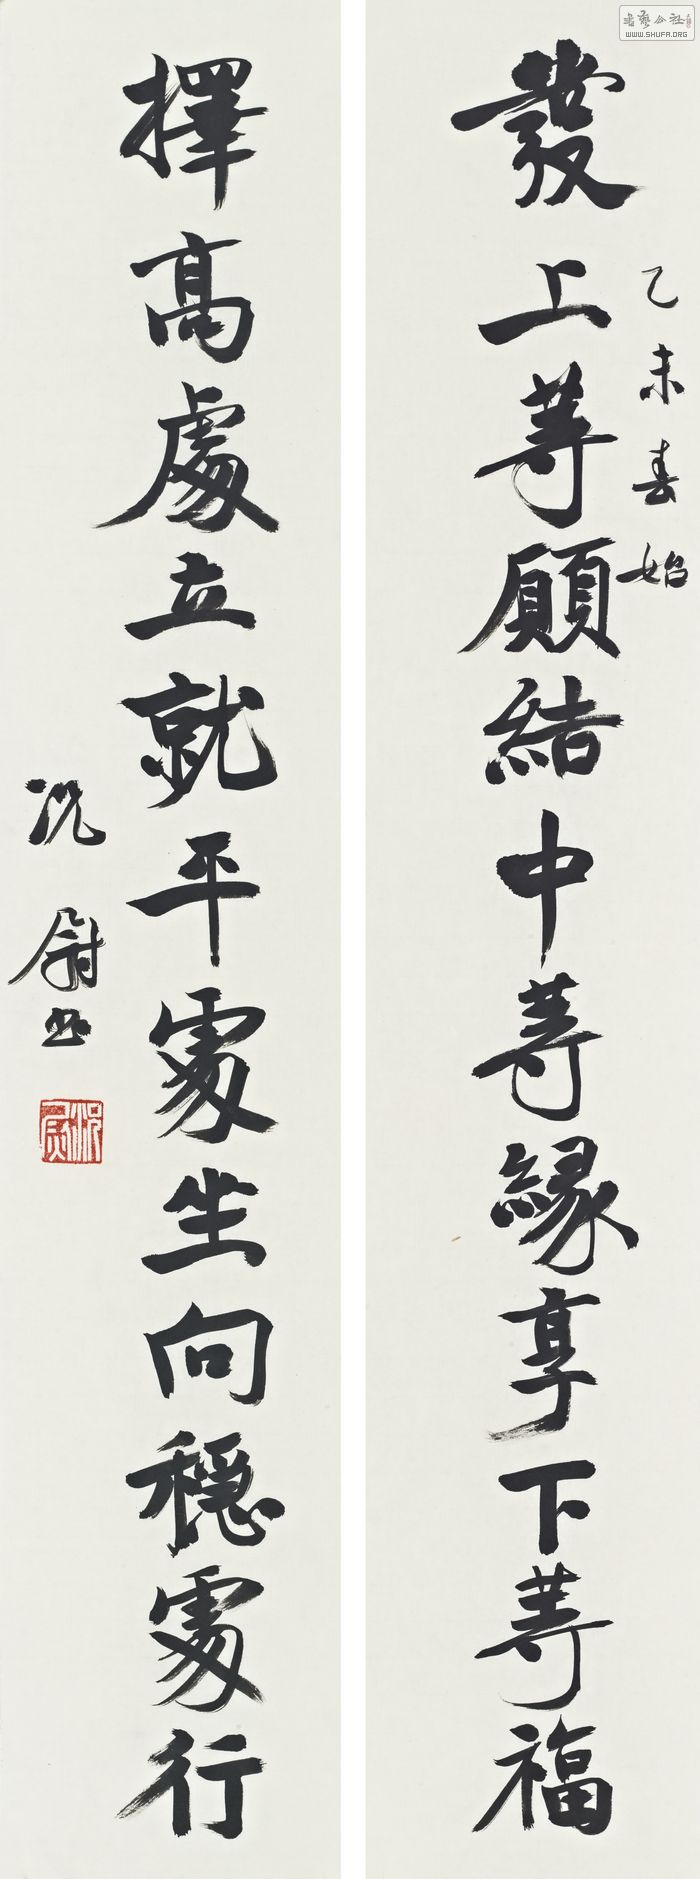 書藝公社
WWW.SHUFA.ORG
發上等願結中等緣享下等福
乙未春始
擇高處立就平處坐向穩處行
况尉书
况尉